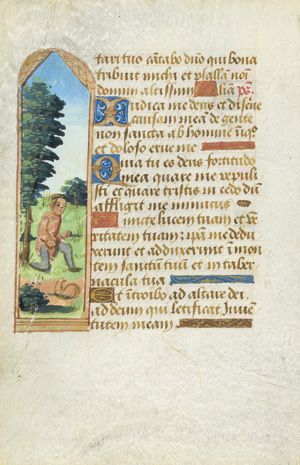 tari tuo cantabo dno qui bona
tribuit michi et psallam noi
domini altissimi Alia ps
Iudica me deus et discerne
causam meam de gente
non sancta ab homine iniq
et doloso erue me
Quia tu es deus fortitudo
mea quare me repuli
sti et quare tristis incedo dum
affligit me inimicus
Emitte lucem tuam et ve
ritatem tuam ipsa me dedu
xerunt et adduxerunt in mon
tem sanctum tuum et in taber
nacula tua
Et introibo ad altare dei
ad deum qui letificat iuven
tutem meam